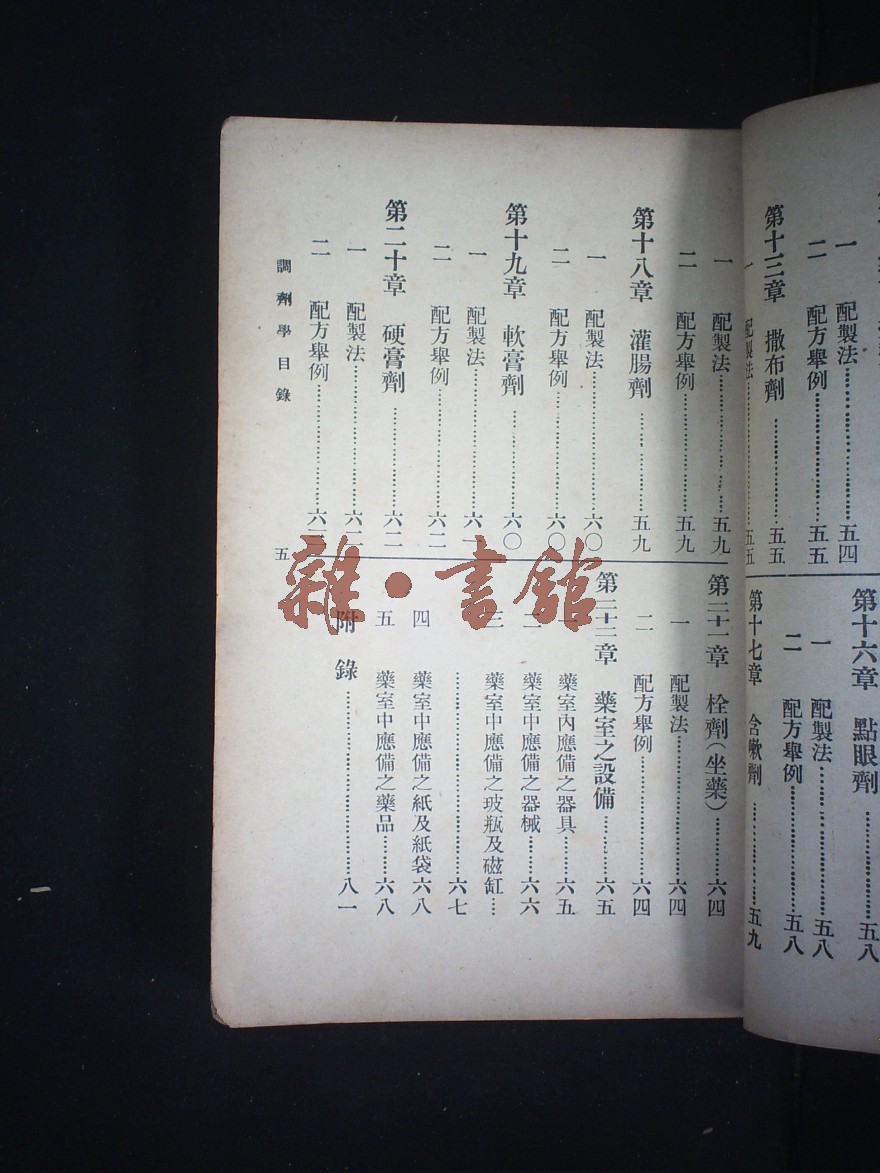 一 配製法……五四
二 配方舉例……五五
第十三章 撒布劑……五五
一 配製法……五五
第十六章 點眼劑……五八
一 配製法……五八
二 配方舉例……五八
第十七章 含嗽劑……五九
一 配製法……五九
二 配方舉例……五九
第十八章 灌腸劑……五九
一 配製法……六〇
二 配方舉例……六〇
第十九章 軟膏劑……六〇
一 配製法……六一
二 配方舉例……六二
第二十章 硬膏劑……六二
一 配製法……六二
二 配方舉例……
第二十一章 栓劑（坐藥）……六四
一 配製法……六四
二 配方舉例……六四
第二十二章 藥室之設備……六五
一 藥室內應備之器具……六五
二 藥室中應備之器械……六六
三 藥室中應備之玻瓶及磁缸……
……六七
四 藥室中應備之紙及紙袋 六八
五 藥室中應備之藥品……六八
附錄……八一
調劑學目錄
五
雜·書館